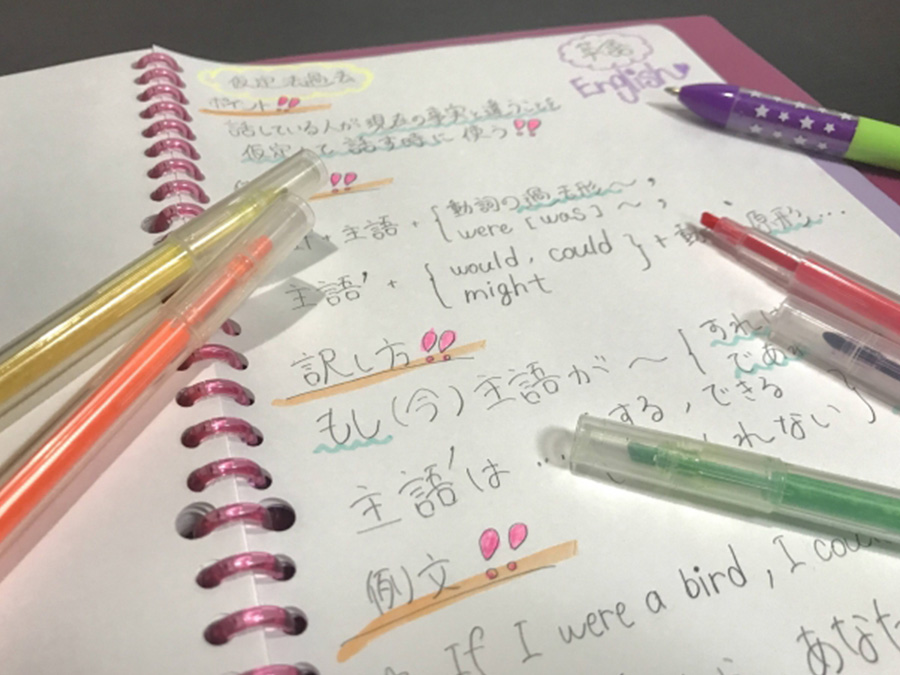 英語
English
仮定法過去
ポイント!!
話している人が現在の事実と違うことを
仮定して話す時に使う!!
!!
主語 + { 動詞の過去形～,
were [was] ～,
主語' + { would, could
might } + 動 原形…
訳し方!!
もし(今)主語が～ { すれば
であ
主語'は … する, できる
しれない }
例文!!
If I were a bird, I cou
あなた